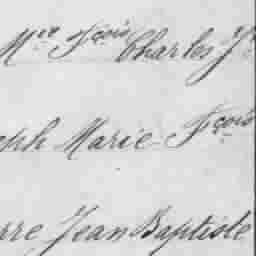 Mie Fçois Charles J
eph Marie Fçois
rre Jean Baptiste